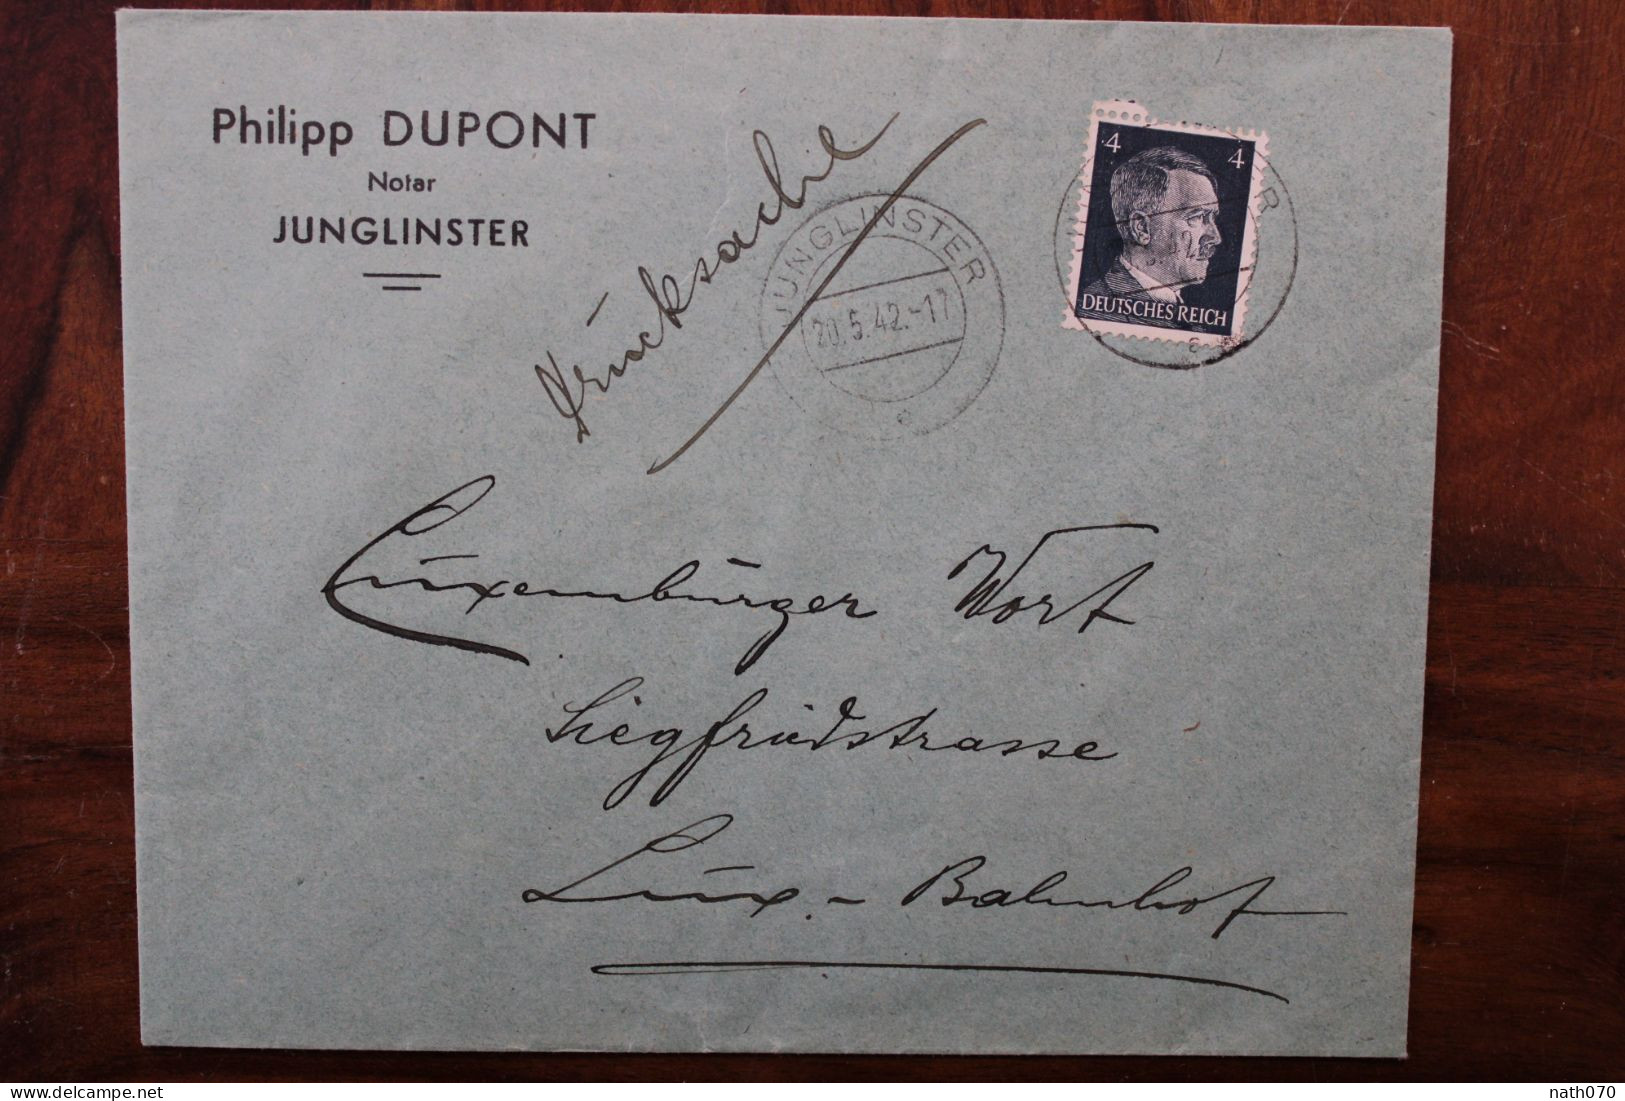 Philipp DUPONT
Notar
JUNGLINSTER
Drucksache
JUNGLINSTER
20.5.42.-17
e
4 4
DEUTSCHES REICH
e
Luxemburger Wort
Siegfriedstrasse
Lux. - Bahnhof
nath070